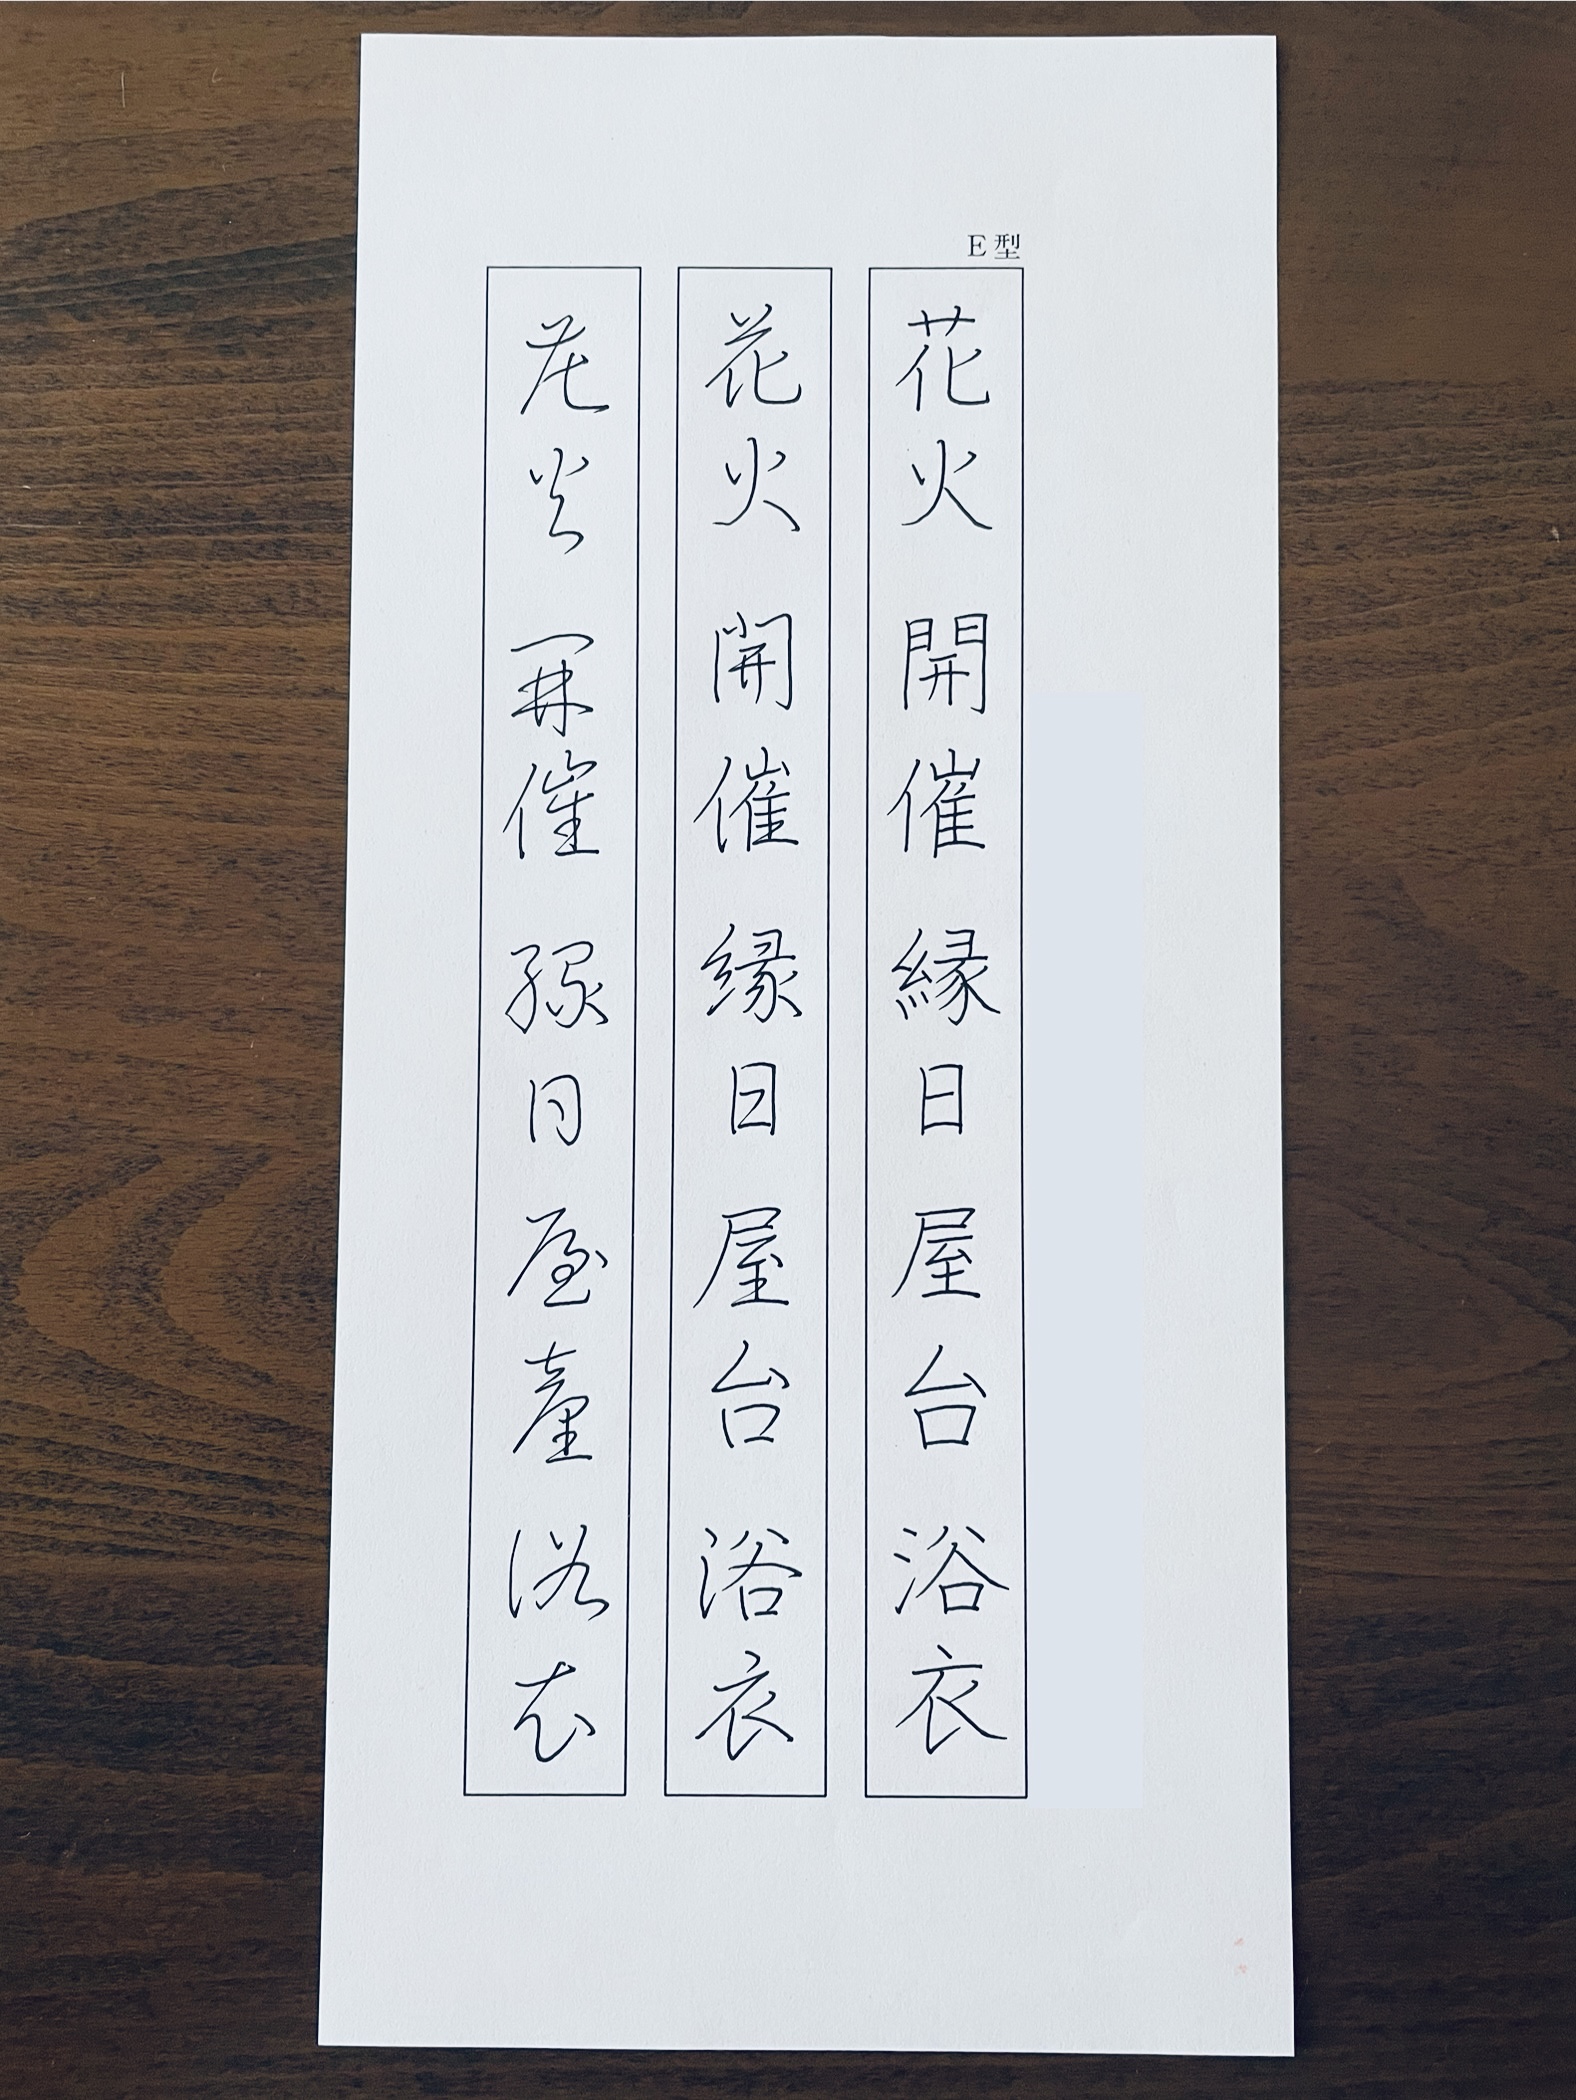 E型
花火開催縁日屋台浴衣
花火開催縁日屋台浴衣
花火開催縁日屋臺浴衣